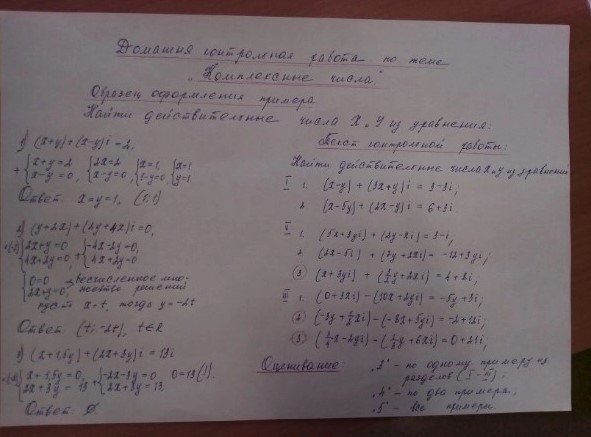 Домашня контрольная работа по теме
„Комплексные числа“
Образец оформления примера
Найти действительные числа X и Y из уравнения:
1) (x+y)+(x-y)i=2,
+{x+y=2 {2x=2 {x=1, {x=1
x-y=0, x-y=0, 1-y=0, y=1.
Ответ: x=y=1, (1;1)
2) (y+2x)+(2y+4x)i=0,
2x+y=0 -4x-2y=0,
4x+2y=0 + 4x+2y=0
{0=0 бесчисленное мно-
2x+y=0, жество решений
пусть x=t, тогда y=-2t
Ответ (t; -2t), t∈R
3) (x+1,5y)+(2x+3y)i=13i
x+1,5y=0, -2x-3y=0 0=13(!).
2x+3y=13 2x+3y=13.
Ответ ∅.
Текст контрольной работы:
Найти действительные числа x и y из уравнения
I 1. (x-y)+(3x+y)i=3-3i,
2. (x-5y)+(2x-y)i=6+3i.
II 1. (5x+3yi)+(2y-xi)=3-i,
2. (2x-5i)+(7y+2xi)=-12+3yi,
III 1. (0+3xi)-(10x+2yi)=-5y+3i,
Оценивание „3“ - по одному примеру из
разделов (I-III).
„4“ - по два примера,
„5“ - все примеры.